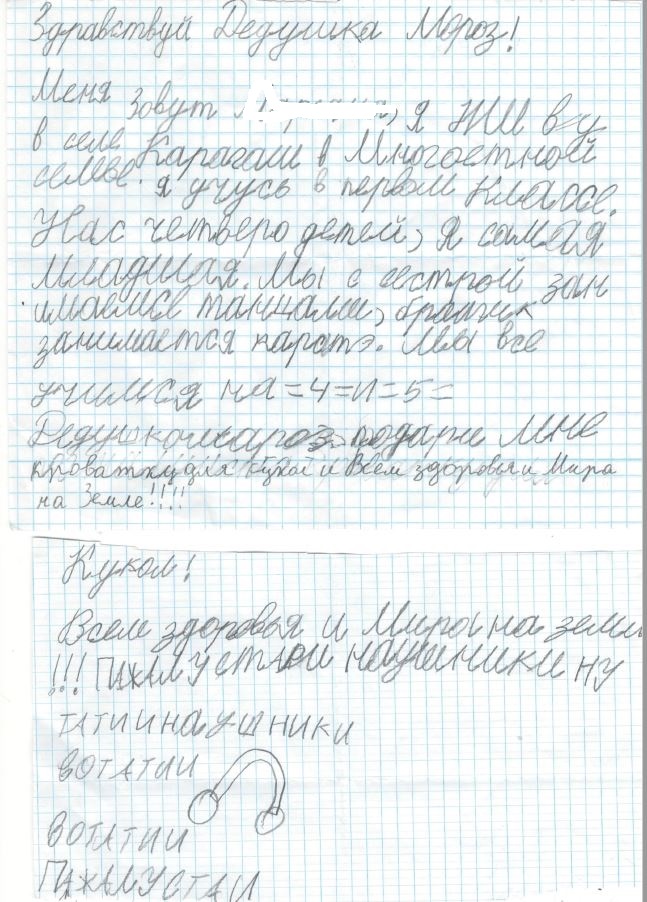 Здравствуй Дедушка Мороз!
Меня зовут я жи ву
в селе Карагаш в Многоетной
семье. я учусь в первом Классе.
Нас четверо детей, я самая
младшая. Мы с сестрой зан
имаемся танцами, братик
занимается каратэ. Мы все
учимся на =4=и=5=
Дедушкомароз подари мне
кроватку для и Всем здоровья и Мира
на Земле!!!!
Кукол!
Всем здоровья и Мира на земле
!!! ПАЖАЛУСТАИ наушники НУ
ТАТИИНАУШНИКИ
ВОТАТИИ
ВОТАТИИ
ПАЖАЛУСТАИ